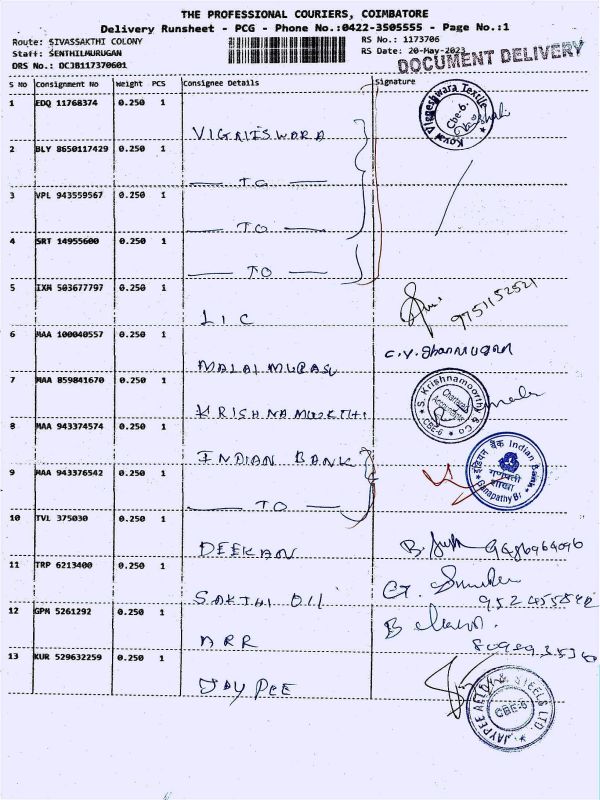 THE PROFESSIONAL COURIERS, COIMBATORE
Delivery Runsheet - PCG - Phone No.:0422-3505555 - Page No.:1
Route: SIVASSAKTHI COLONY
RS No.: 1173706
Staff: SENTHILMURUGAN
RS Date: 20-May-2023
DRS No.: DCJB117370601
DOCUMENT DELIVERY
S No Consignment No Weight PCS Consignee Details Signature
1 EDQ 11768374 0.250 1 VIGNESWARA
Kovai Vigneshwara Textile Cbe-6.
2 BLY 8650117429 0.250 1 — TO —
3 VPL 943559567 0.250 1 — TO —
4 SRT 14955600 0.250 1 — TO —
5 IXM 503677797 0.250 1 LIC 9751152521
6 MAA 100040557 0.250 1 MALAI MURASU C.V. Shanmugam
7 MAA 859841670 0.250 1 KRISHNAMOORTHI
S. Krishnamoorthy & Co Chartered Accountants CBE-6
8 MAA 943374574 0.250 1 INDIAN BANK
इंडियन बैंक Indian Bank गणपती शाखा Ganapathy Br
9 MAA 943376542 0.250 1 — TO —
10 TVL 375030 0.250 1 DEEKAN
11 TRP 6213400 0.250 1 SAKTHI OIL
12 GPM 5261292 0.250 1 ARR
13 KUR 529632259 0.250 1 JAY PEE
CBE-6